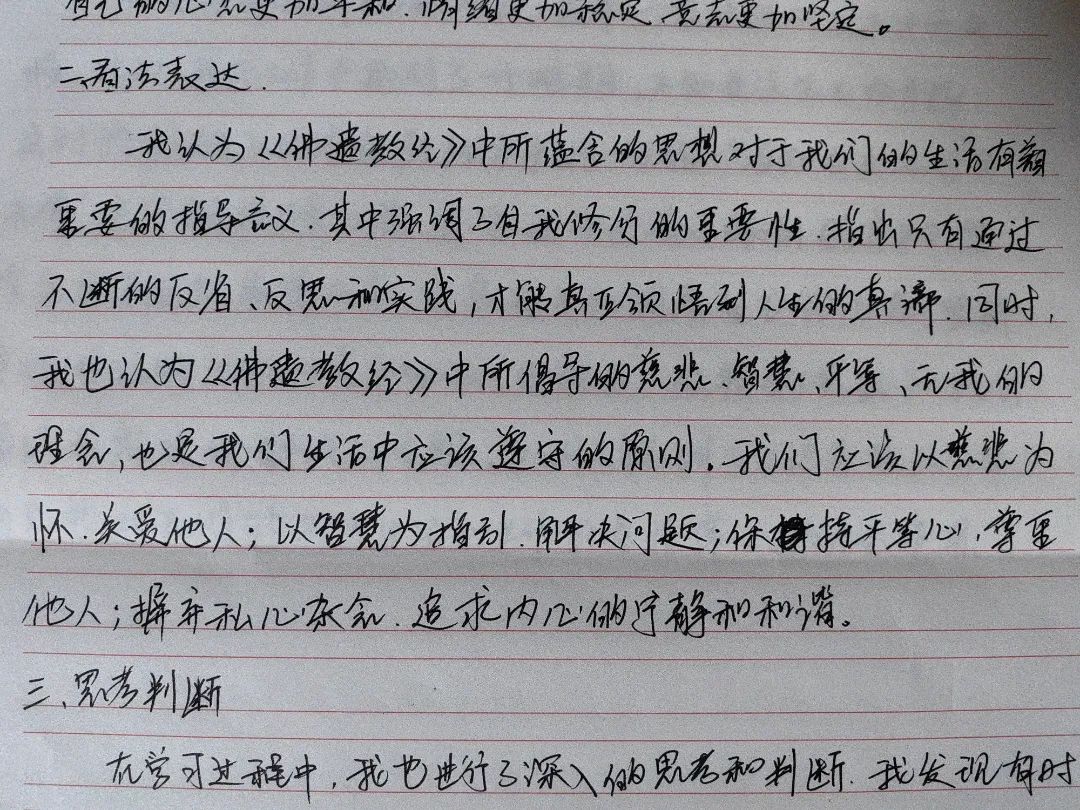 自己的心态更加平和，情绪更加稳定，意志更加坚定。
二、看法表达.
我认为《佛遗教经》中所蕴含的思想对于我们的生活有着
重要的指导意义.其中强调了自我修行的重要性.指出只有通过
不断的反省、反思和实践，才能真正领悟到人生的真谛.同时，
我也认为《佛遗教经》中所倡导的慈悲、智慧、平等、无我的
理念，也是我们生活中应该遵守的原则。我们应该以慈悲为
怀.关爱他人；以智慧为指引.解决问题；保持平等心，尊重
他人；摒弃私心杂念.追求内心的宁静和和谐。
三、思考判断
在学习过程中，我也进行了深入的思考和判断.我发现有时